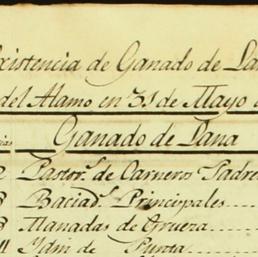 Existencia de Ganado de La
del Alamo en 31 de Mayo d
Ganado de Lana
Pastors. de Carneros Padre
Baciads. Principales
Manadas de Grueza
Idm de Punta